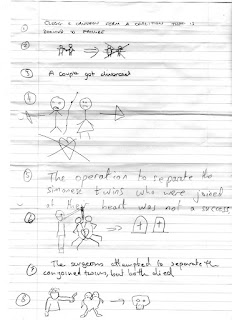 ①
②
③ A couple got divorced
④
⑤ The operation to separate the
siamese twins who were joined
at their heart was not a success
⑥
⑦ The surgeons attempted to separate the
conjoined twins, but both died
⑧